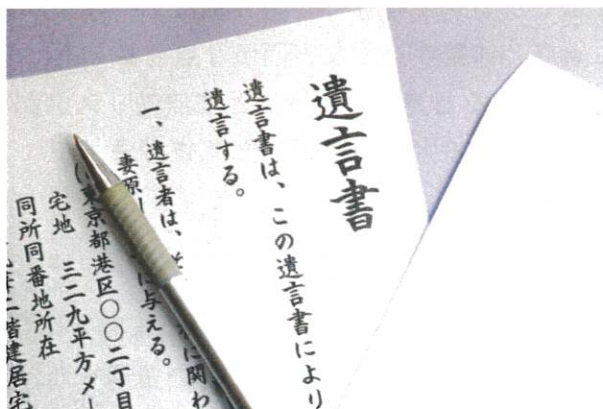 遺言書
遺言書は、この遺言書により
遺言する。
一、遺言者は、
に関わ
妻原
与える。
東京都港区〇〇二丁目
宅地 三二九平方メー
同所同番地所在
二階建居宅